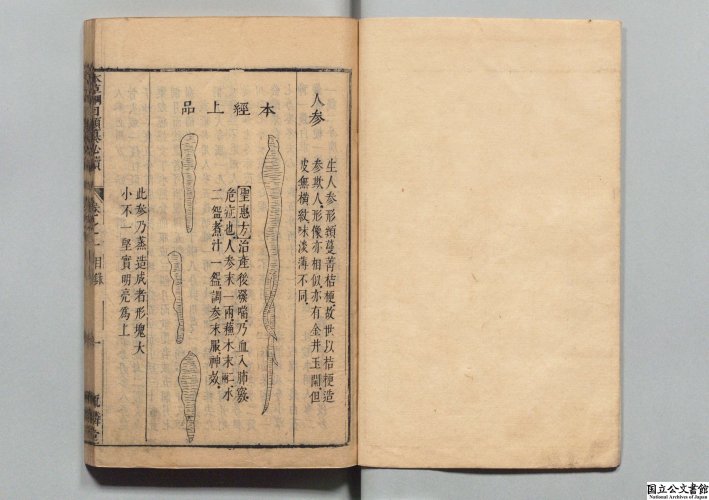 人参
生人参形類蔓菁桔梗故世以桔梗造
参欺人形像亦相似亦有金井玉闌但
皮無橫紋味淡薄不同
本經上品
聖惠方治產後發喘乃血入肺竅
危症也人参末一兩蘓木末二兩水
二盌煮汁一盌調参末服神效
此参乃蒸造成者形塊大
小不一堅實明亮爲上
本草綱目類纂必讀 卷之一 目錄 一
国立公文書館
National Archives of Japan